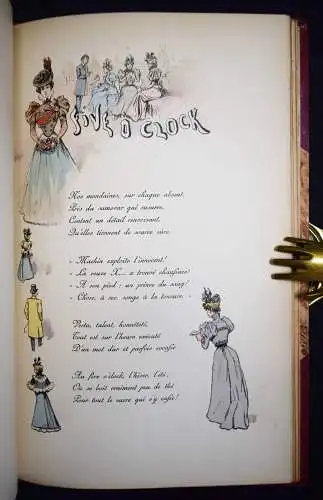 FIVE O'CLOCK
Nos mondaines, sur chaque absent,
Près du samovar qui susurre,
Content un détail
Qu'elles tiennent de source sûre.
- "Machin exploite l'innocent!
- "La veuve X... a trouvé chaussure
- "A son pied: un prince du sang!
- "Chose, à sec, songe à la tonsure."
Vertu, talent, honnêteté,
Tout est sur l'heure exécuté
D'un mot dur et parfois cocasse
Au five o'clock, l'hiver, l'été,
On ne boit vraiment pas de thé
Pour tout le sucre qui s'y casse!